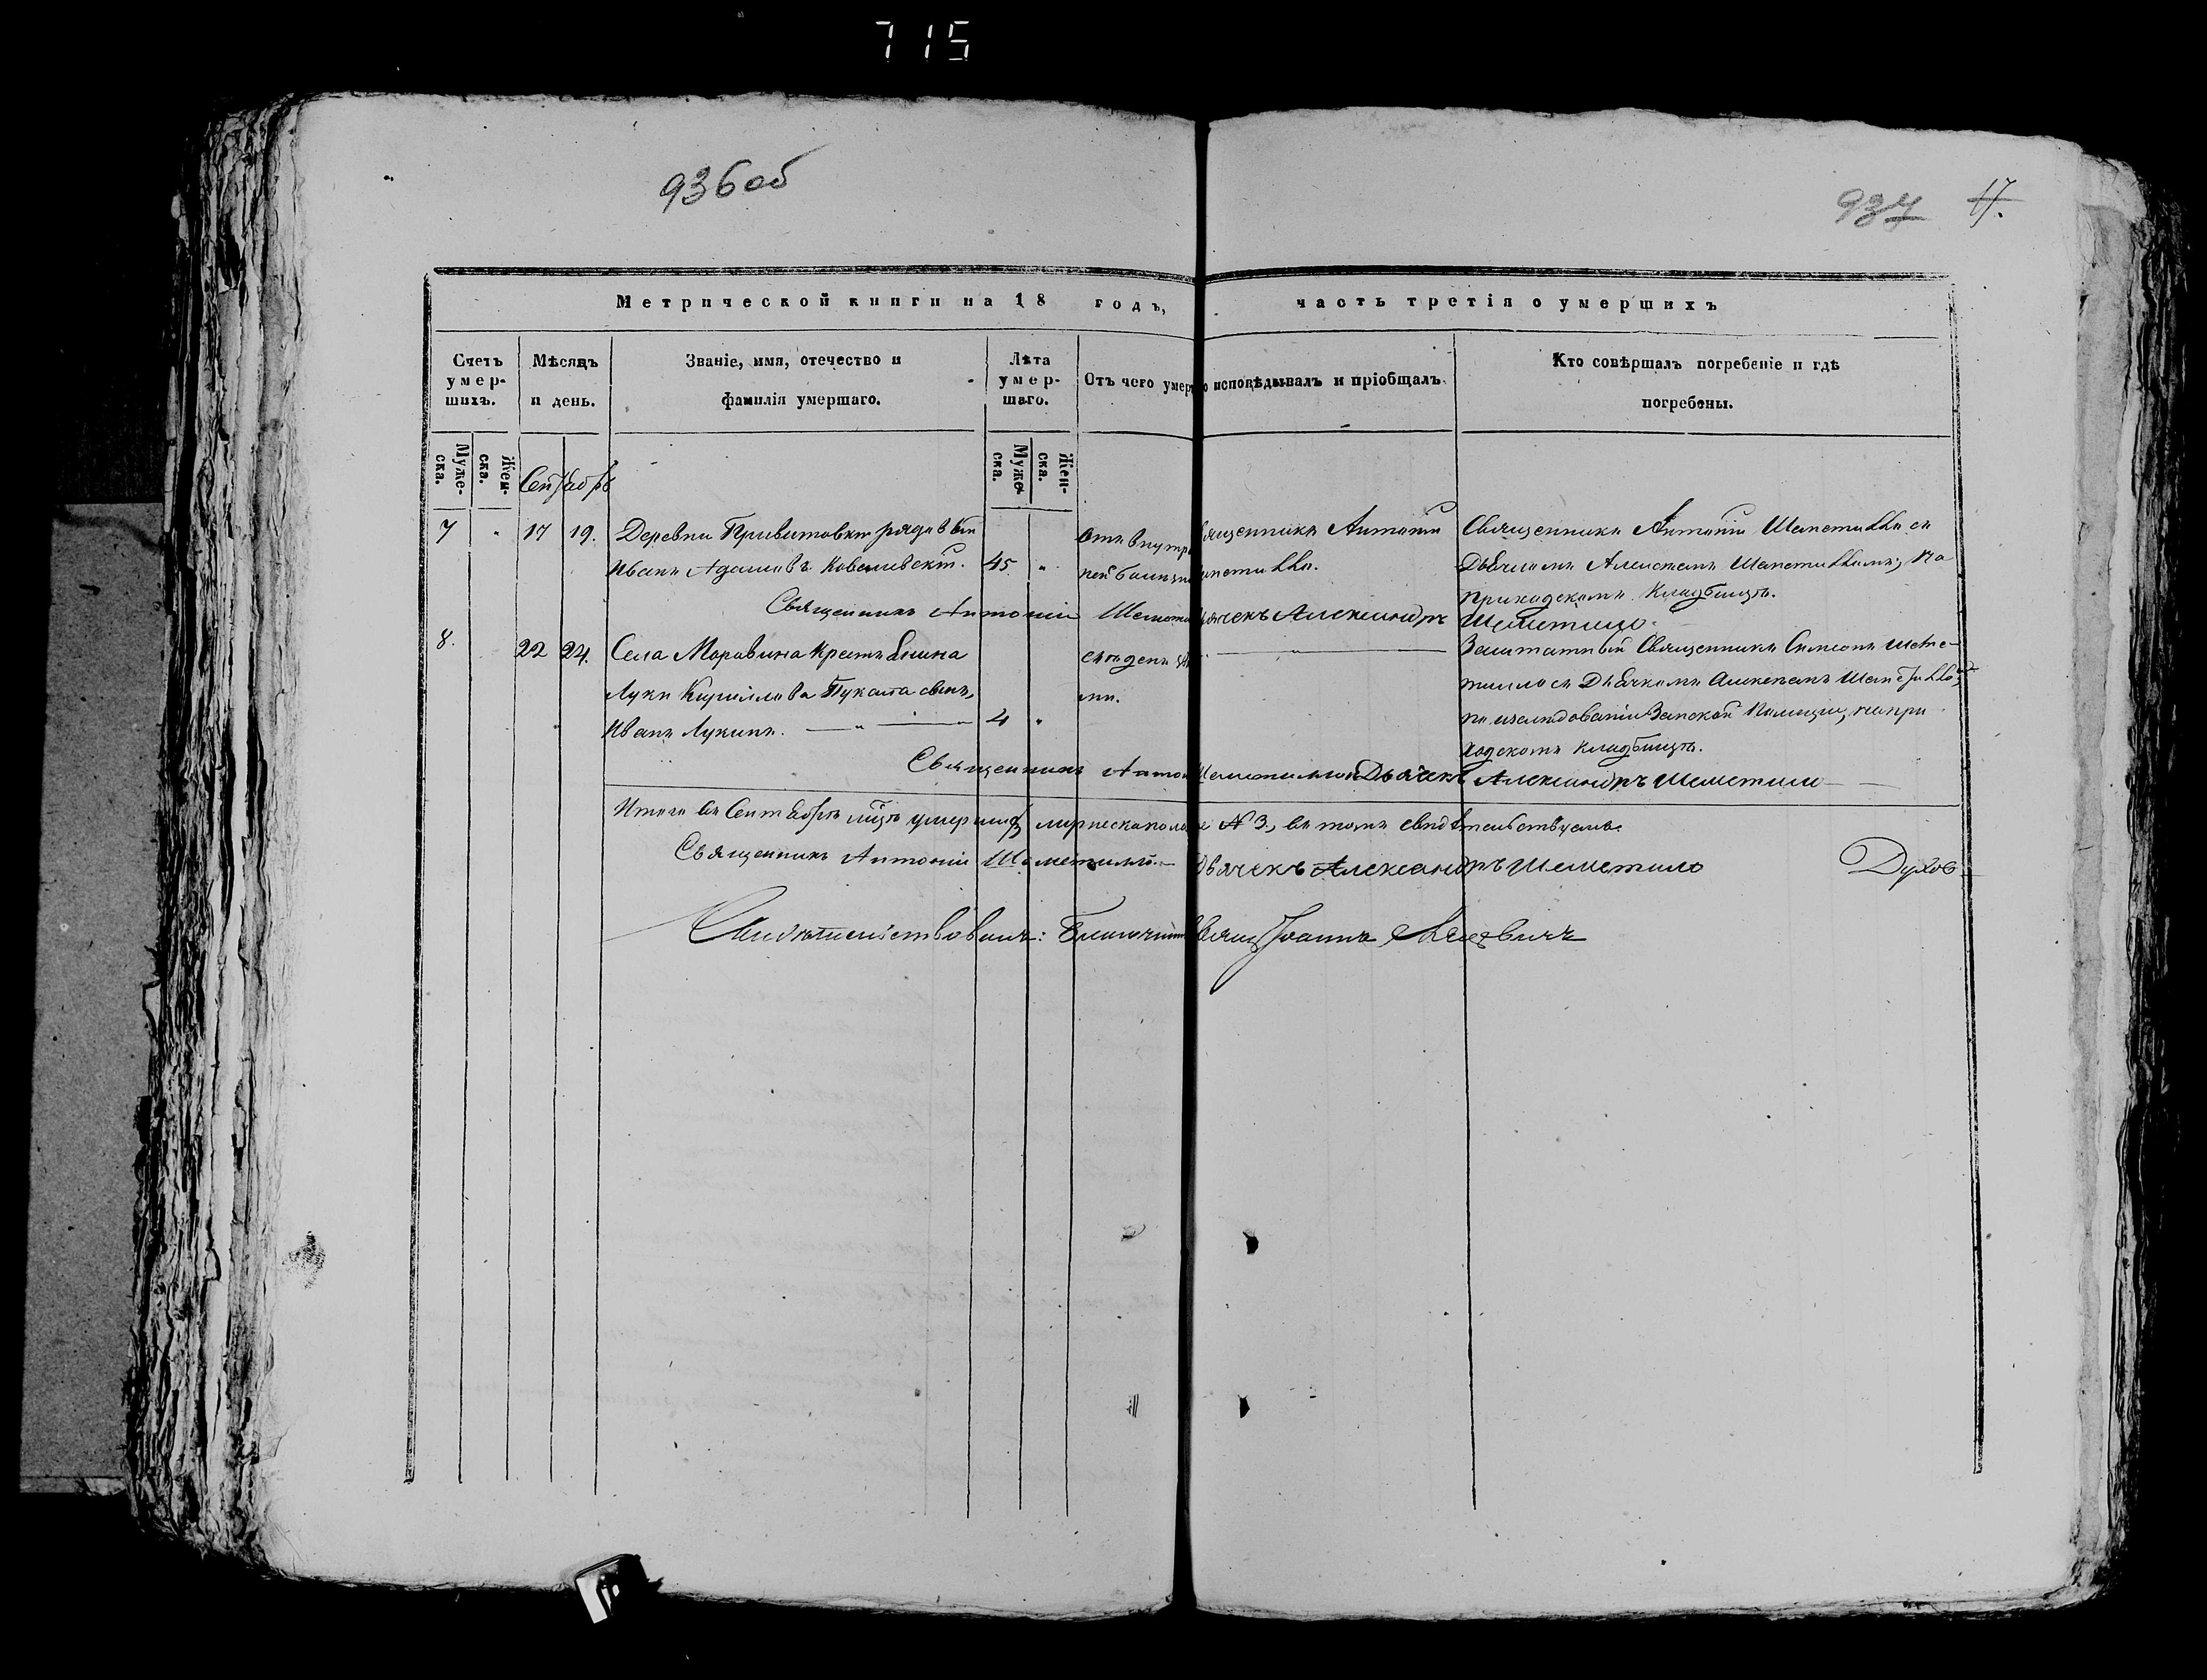 715
936об
937 17.
Метрической книги на 18 годъ, часть третія о умершихъ
Счетъ умер- шихъ.
Мѣсяцъ и день.
Званіе, имя, отечество и фамилія умершаго.
Лѣта умер- шаго.
Отъ чего умер
о исповѣдывалъ и пріобщалъ.
Кто совѣршалъ погребеніе и гдѣ погребены.
Муже- ска.
Жен- ска.
Муже- ска.
Жен- ска.
Сентябрь
7 " 17 19. Деревни Привитовки рядовый
Иванъ Адамовъ Ковалевскій. 45. "
отъ внутр
ней болезни
вященникъ Антоній
Священникъ Антоній Шеметилло съ
Дьячкомъ Шеметилломъ, на
приходскомъ Кладбищѣ.
Священникъ Антоній Шемети Дьячекъ Александръ Шеметило
8. 22 24. Села Моравина Крестьянина
Луки Кириллова сынъ,
Иванъ Лукинъ. 4 "
Заштатный Священникъ Симеонъ Шеме-
тилло съ Дьячкомъ Шеметилло,
Земской Полиціи, на при
ходскомъ Кладбищѣ.
Священникъ Антон Шеметилло Дьячекъ Александръ Шеметило
Итого въ Сентябрѣ м̃цѣ умершихъ мужеска пола № 3, въ томъ свидѣтельствуемъ.
Священникъ Антоній Шеметилло. Дьячекъ Александръ Шеметило
Духов
Свидѣтельствовалъ: Благочинный Свящ Іоаннъ